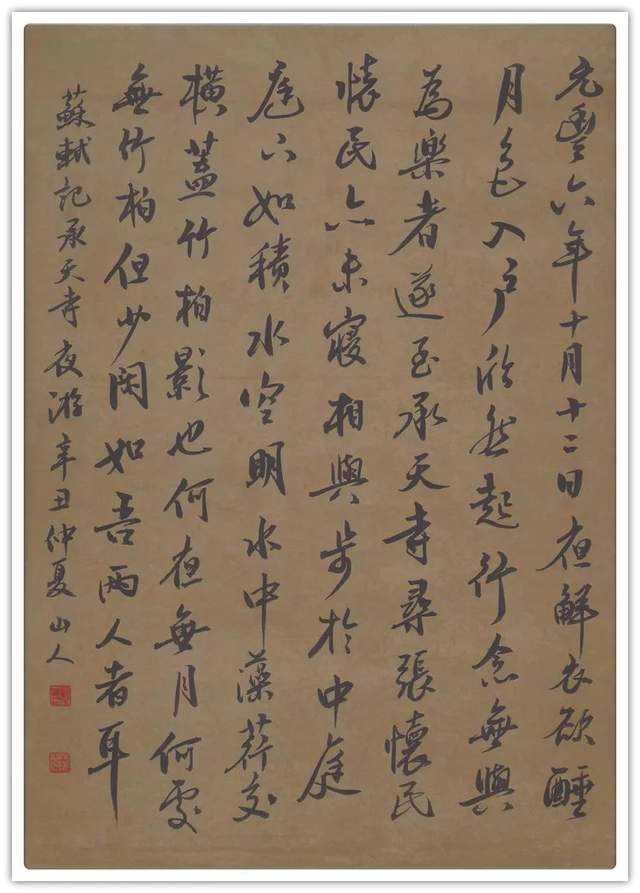 元豐六年十月十二日夜解衣欲睡
月色入戶欣然起行念無與
為樂者遂至承天寺尋張懷民
懷民亦未寢相與步於中庭
庭下如積水空明水中藻荇交
橫蓋竹柏影也何夜無月何處
無竹柏但少閑如吾兩人者耳
蘇軾記承天寺夜游辛丑仲夏山人